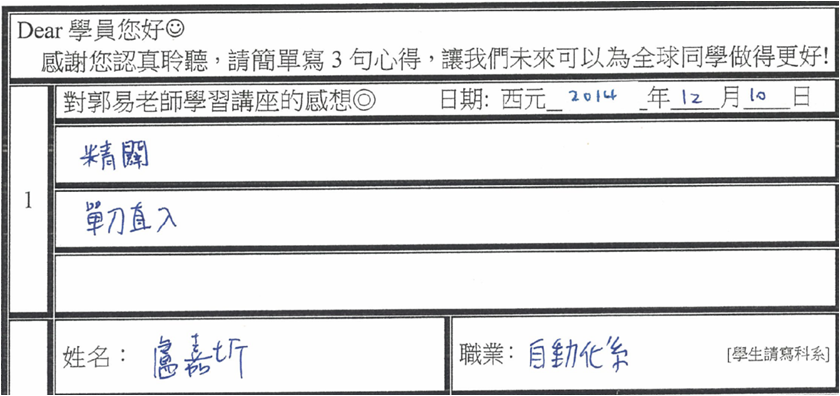 Dear 學員您好☺
感謝您認真聆聽，請簡單寫 3 句心得，讓我們未來可以為全球同學做得更好!
對郭易老師學習講座的感想◎ 日期: 西元 2014 年 12 月 10 日
精闢
1
單刀直入
姓名： 盧嘉圻 職業： 自動化系 [學生請寫科系]